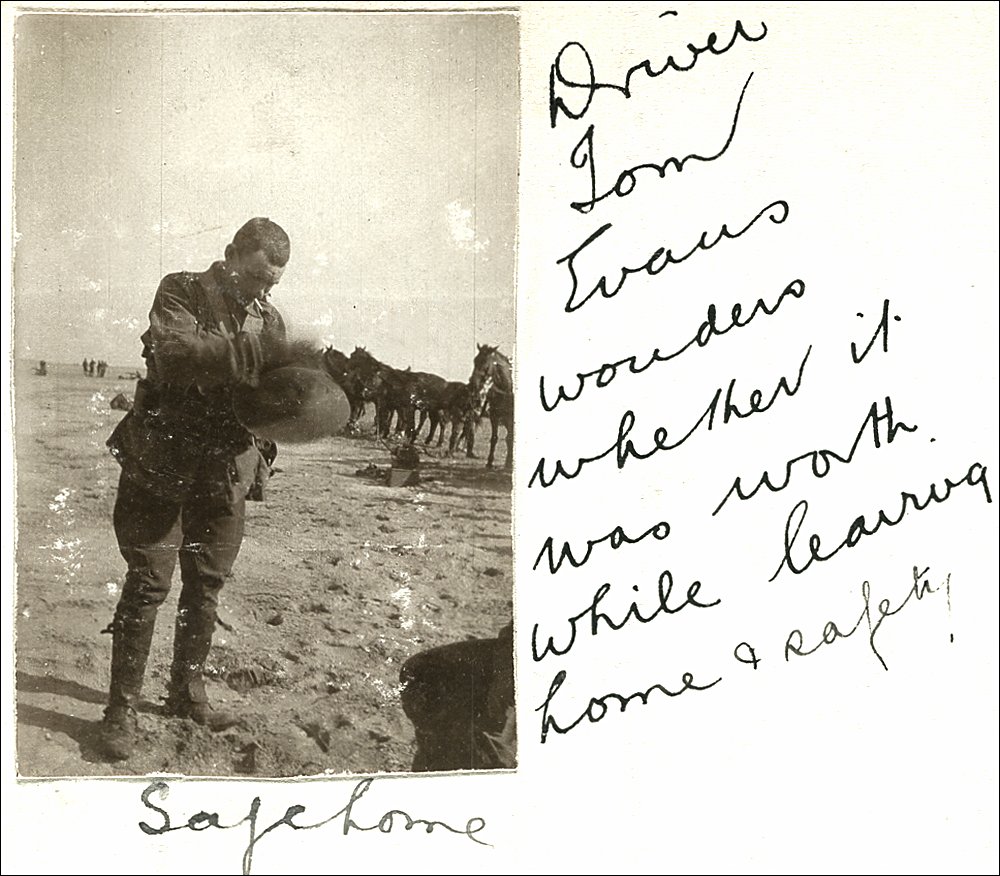 Driver
Tom
Evans
wonders
whether it
was worth
while learvig
home & safety!
Safe home